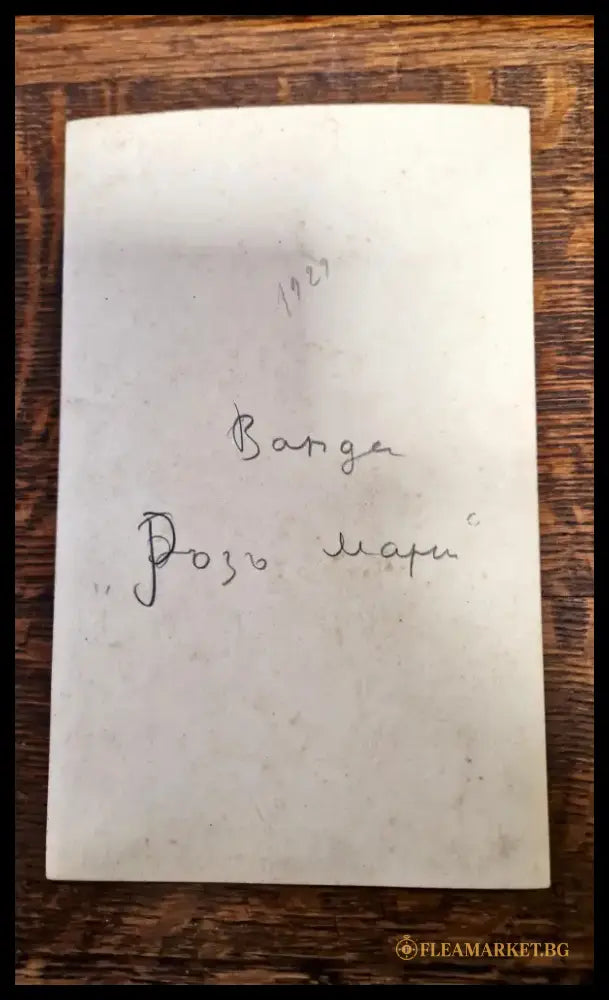 1929
Ванда
„Розъ Мари“
FLEAMARKET.BG